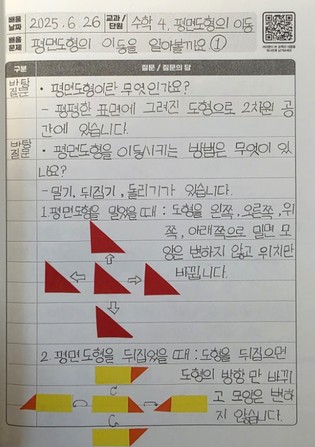 배움 날짜 2025. 6. 26 교과/단원 수학 4. 평면도형의 이동
배움 문제 평면도형의 이동을 알아볼까요 ①
구분 질문 / 질문의 답
바탕 질문 · 평면도형이란 무엇인가요?
- 평평한 표면에 그려진 도형으로 2차원 공
간에 있습니다.
바탕 질문 · 평면도형을 이동시키는 방법은 무엇이 있
나요?
- 밀기, 뒤집기, 돌리기가 있습니다.
1 평면도형을 밀었을 때 : 도형을 왼쪽, 오른쪽, 위
쪽, 아래쪽으로 밀면 모
양은 변하지 않고 위치만
바뀝니다.
2 평면도형을 뒤집었을 때 : 도형을 뒤집으면
도형의 방향만 바뀌
고 모양은 변하
지 않습니다.